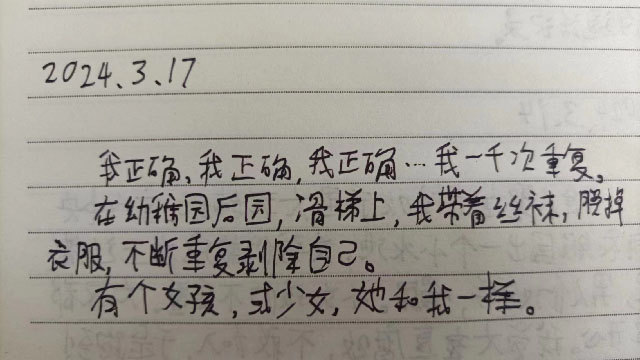 2024.3.17
我正确,我正确,我正确…我一千次重复。
在幼稚园后园,滑梯上,我带着丝袜,脱掉
衣服,不断重复剥除自己。
有个女孩,或少女,她和我一样。